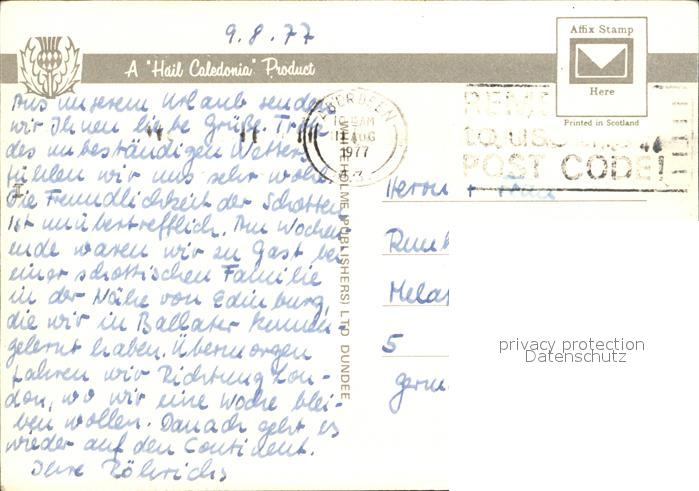 9.8.77
Affix Stamp
Here
Printed in Scotland
A "Hail Caledonia" Product
Aus unserem Urlaub senden
wir Ihnen liebe Grüße. Trotz
des unbeständigen Wetters
fühlen wir uns sehr wohl.
Die Freundlichkeit der Schotten
ist unübertrefflich. Am Wochen-
ende waren wir zu Gast bei
einer schottischen Familie
in der Nähe von Edinburg,
die wir in Ballater kennen-
gelernt haben. Übermorgen
fahren wir Richtung Lon-
don, wo wir eine Woche blei-
ben wollen. Danach geht es
wieder auf den Continent.
Ihre Röhrichs
ABERDEEN
AM
11 AUG
1977
POST CODE
WHITEHOLME (PUBLISHERS) LTD DUNDEE
Herrn + Frau
5
Germ
privacy protection
Datenschutz